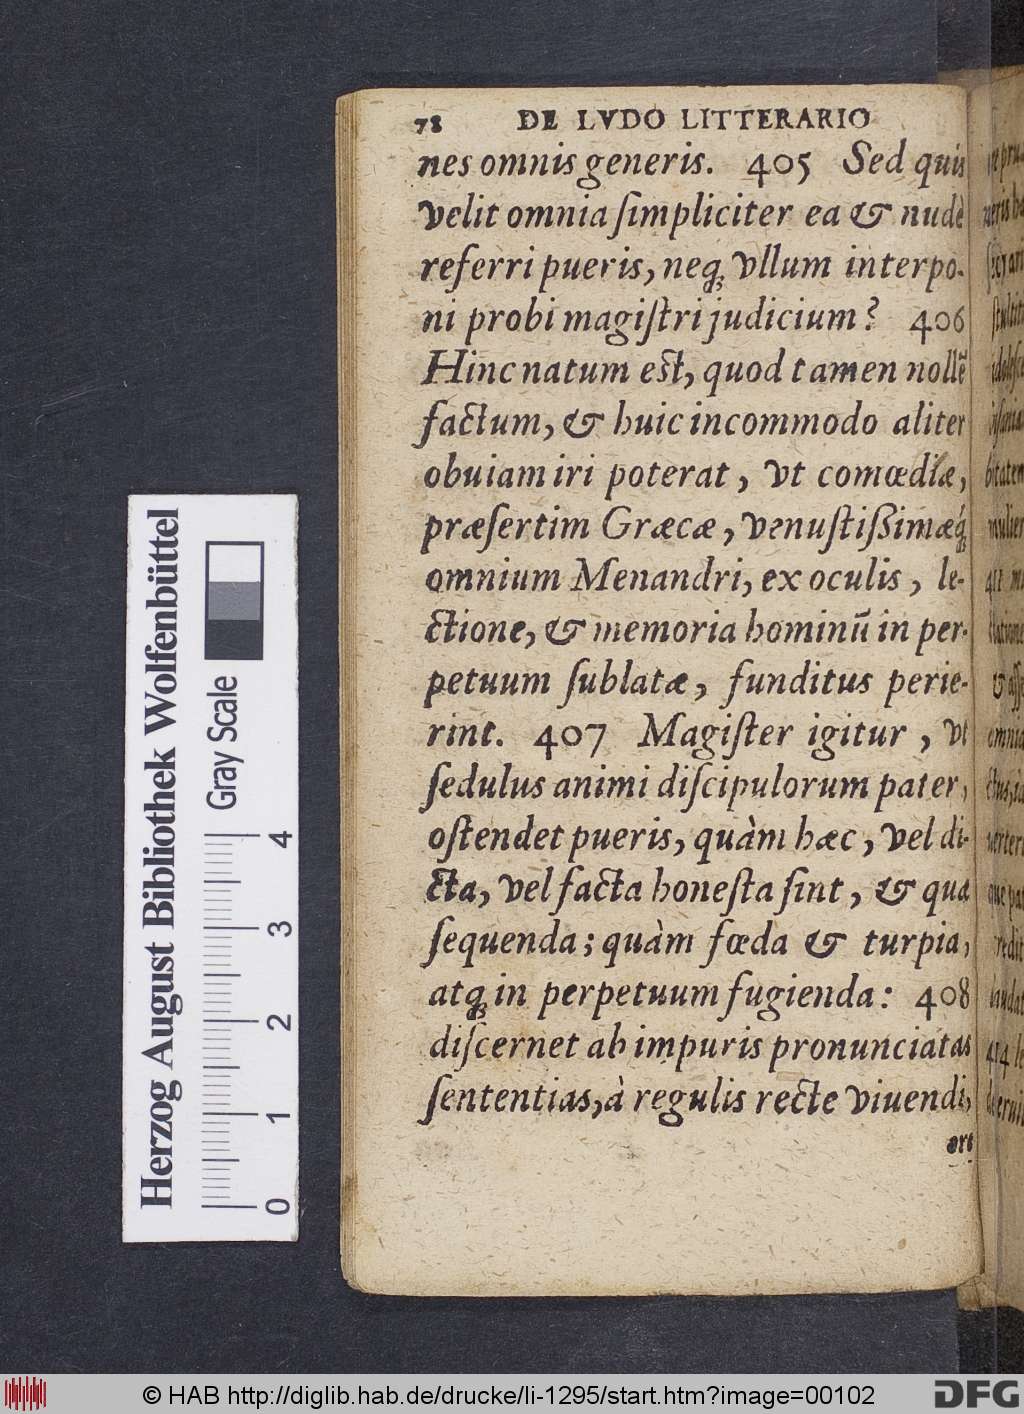 78 DE LVDO LITTERARIO
nes omnis generis. 405 Sed quis
velit omnia ſimpliciter ea & nudè
referri pueris, neq; vllum interpo-
ni probi magiſtri judicium? 406
Hinc natum eſt, quod tamen nollẽ
factum, & huic incommodo aliter
obuiam iri poterat, vt comœdiæ,
præſertim Græcæ, venuſtißimæq́;
omnium Menandri, ex oculis, le-
ctione, & memoria hominũ in per-
petuum ſublatæ, funditus perie-
rint. 407 Magiſter igitur, vt
ſedulus animi diſcipulorum pater,
oſtendet pueris, quàm hæc, vel di-
cta, vel facta honeſta ſint, & quà
ſequenda; quàm fœda & turpia,
atq; in perpetuum fugienda: 408
diſcernet ab impuris pronunciatas
ſententias, à regulis recte viuendi,
Herzog August Bibliothek Wolfenbüttel
Gray Scale
0 1 2 3 4
© HAB http://diglib.hab.de/drucke/li-1295/start.htm?image=00102
DFG